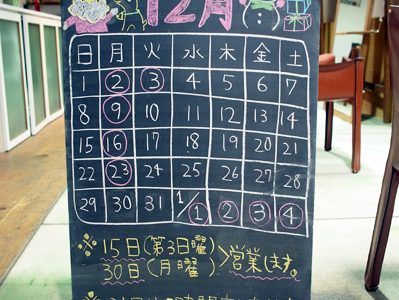 12月
日 月 火 水 木 金 土
1 2 3 4 5 6 7
8 9 10 11 12 13 14
15 16 17 18 19 20 21
22 23 24 25 26 27 28
29 30 31 1/1 2 3 4
※ 15日(第3日曜)
30日(月曜)
>営業します。